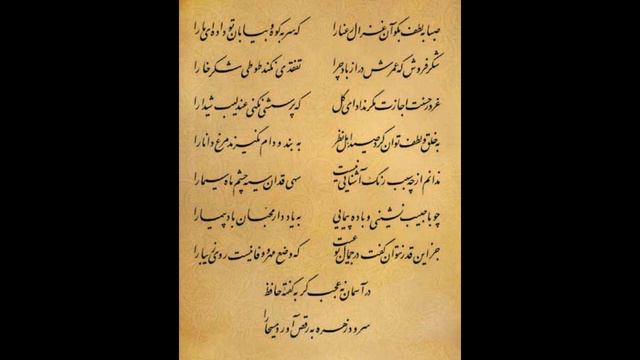 صبا به لطف بگو آن غزال رعنا را که سر به کوه و بیابان تو داده‌ای ما را
شکرفروش که عمرش دراز باد چرا تفقدی نکند طوطی شکرخا را
غرور حسنت اجازت مگر نداد ای گل که پرسشی نکنی عندلیب شیدا را
به خلق و لطف توان کرد صید اهل نظر به بند و دام نگیرند مرغ دانا را
ندانم از چه سبب رنگ آشنایی نیست سهی قدان سیه چشم ماه سیما را
چو با حبیب نشینی و باده پیمایی به یاد دار محبان بادپیما را
جز این قدر نتوان گفت در جمال تو عیب که وضع مهر و وفا نیست روی زیبا را
در آسمان نه عجب گر به گفته حافظ
سرود زهره به رقص آورد مسیحا را